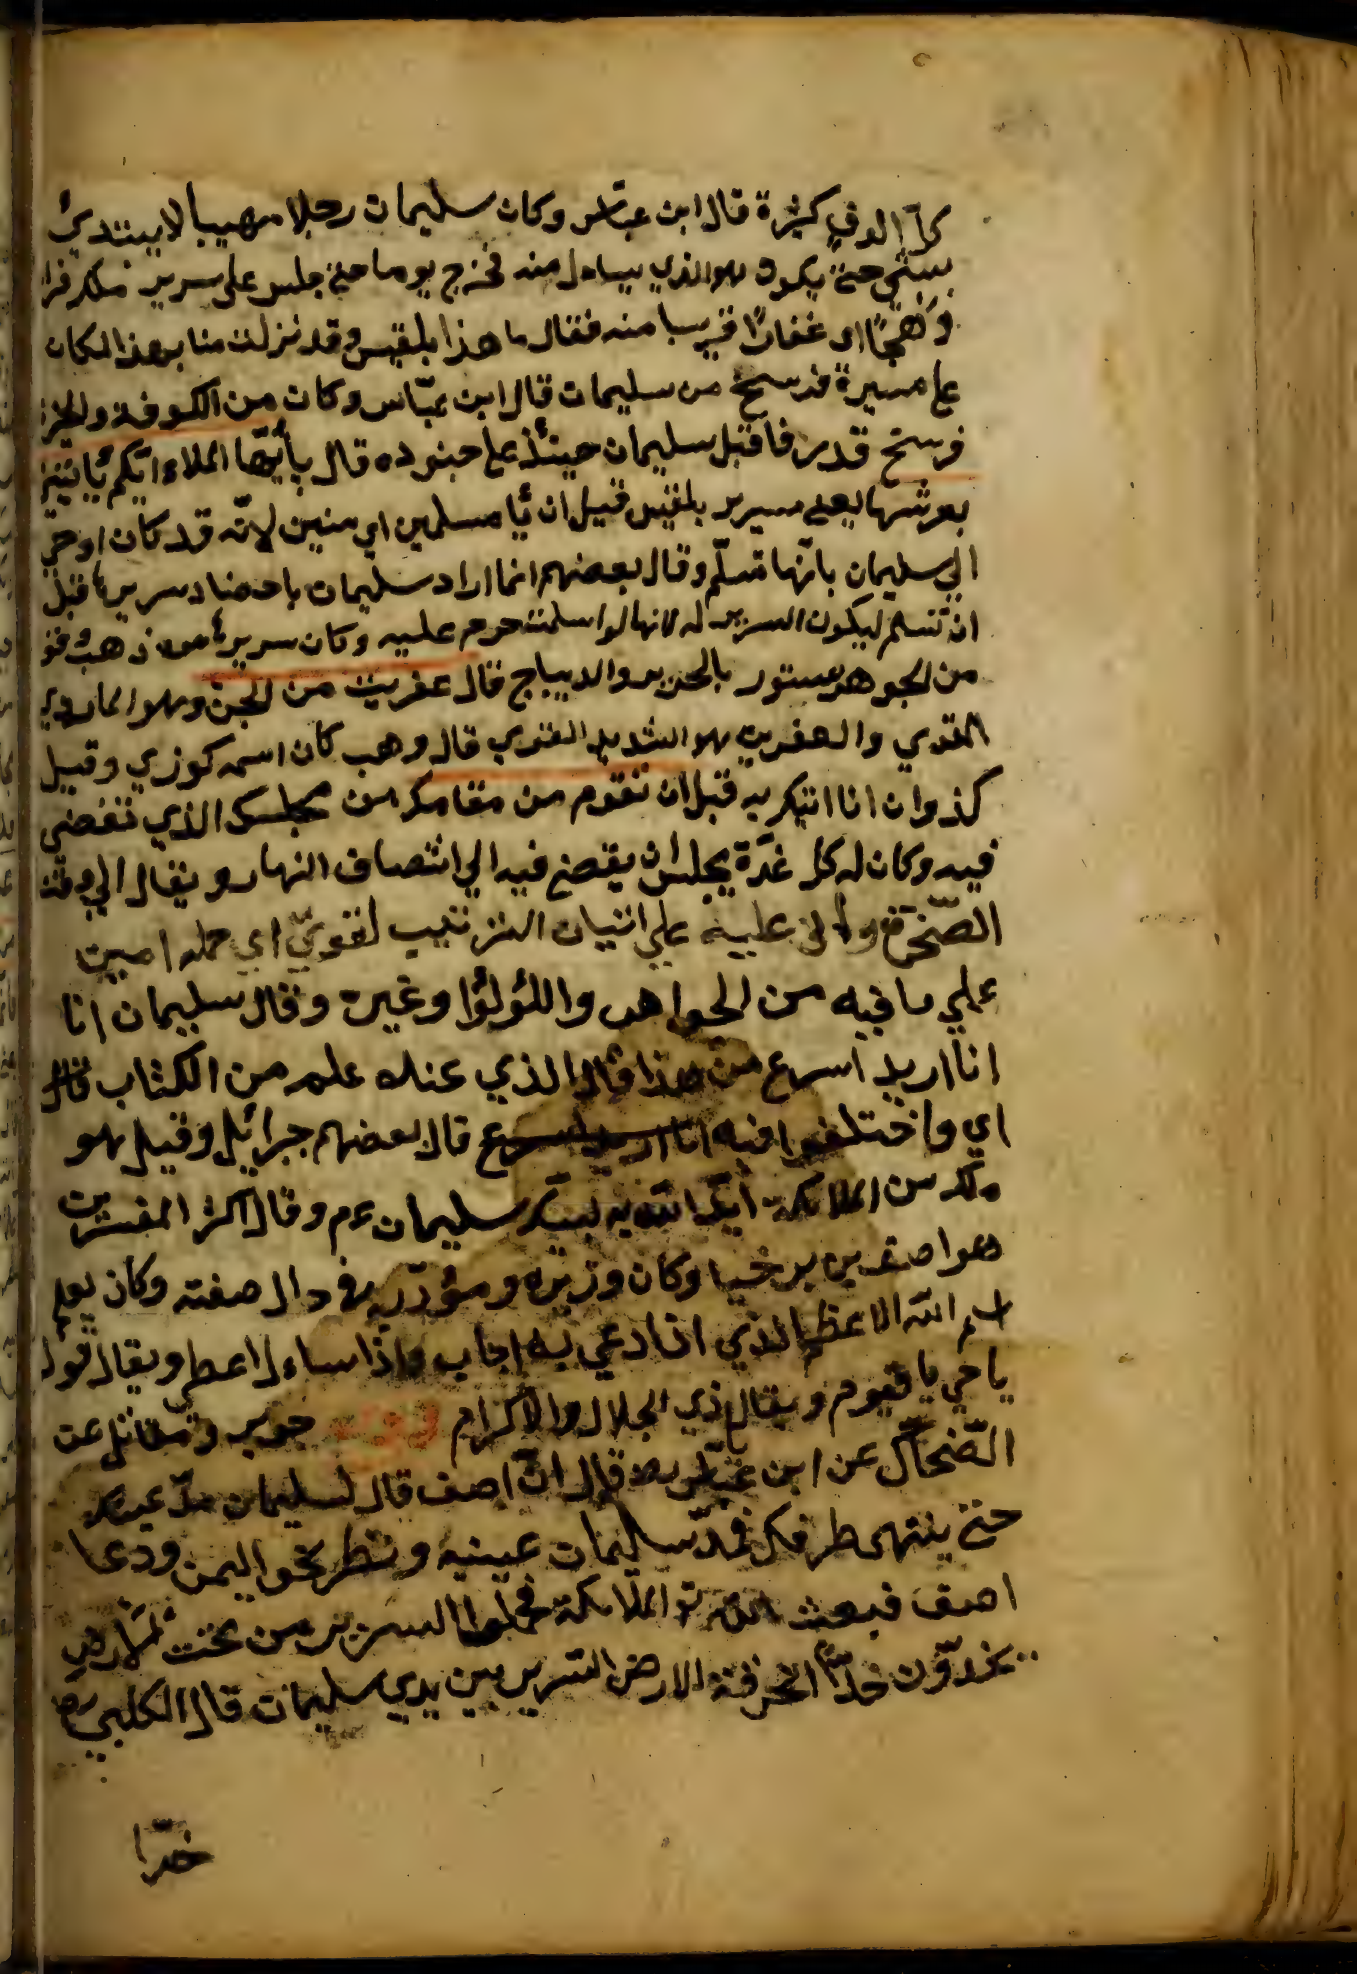 كل الوف كثيرة قال ابن عباس وكان سليمان رجلا مهيبا لا يبتدئ
بشئ حتى يكون هو الذي يساءل منه فخرج يوما حتى جلس على سرير ملكه فرا
وهجا او غفارا قريبا منه فقال ما هذا بلقيس وقد نزلت منا بهذا المكان
على مسيرة فرسخ من سليمان قال ابن عباس وكان من الكوفة والحيرة
فرسخ قدر فاقبل سليمان حينئذ على جنوده قال يأيها الملاء ايكم يأتيني
بعرشها يعني سرير بلقيس قبل ان يأ مسلمين اي منين لانه قد كان اوحي
الي سليمان بانها تسلم وقال بعضهم انما اراد سليمان باحضار سريرها قبل
ان تسلم ليكون السرير له لانها لو اسلمت حرم عليه وكان سريرها من ذهب
من الجوهر بستور بالحرير والديباج قال عفريت من الجن وهو المارد
القوي والعفريت هو الشديد القوي قال وهب كان اسمه كوزي وقيل
كذوان انا اتيك به قبل ان تقوم من مقامك من مجلسك الذي تقضي
فيه وكان له كل غدة يجلس يقضي فيه الي انتصاف النهار ويقال الي وقت
الضحوة واني عليه على اتيان الترتيب لقوي اي حمله امين
علي ما فيه من الجواهر واللؤلؤا وغيره وقال سليمان انا
انا اريد اسرع من هذا قال الذي عنده علم من الكتاب قال
اي واختلفوا فيه انا اريد اسرع قال بعضهم جبرائيل وقيل هو
ملك من الملائكة ايد الله به لنبيه سليمان عم وقال اكثر المفسرين
هو اصف بن برخيا وكان وزيره ومؤدبه في حال صفته وكان يعلم
اسم الله الاعظم الذي اذا دعي به اجاب واذا ساءل اعطي ويقال قول
يا حي يا قيوم ويقال يا ذي الجلال والاكرام جوير ومقاتل عن
الضحاك عن ابن عباس رضه قال ان اصف قال لسليمان مد عينك
حتى ينتهى طرفك فمد سليمان عينيه ونظر نحو اليمن ودعا
اصف فبعث الله تع الملائكة فحملوا السرير من تحت الارض
يخدون خدا انخرقة الارض السرير بين يدي سليمان قال الكلبي
خرا